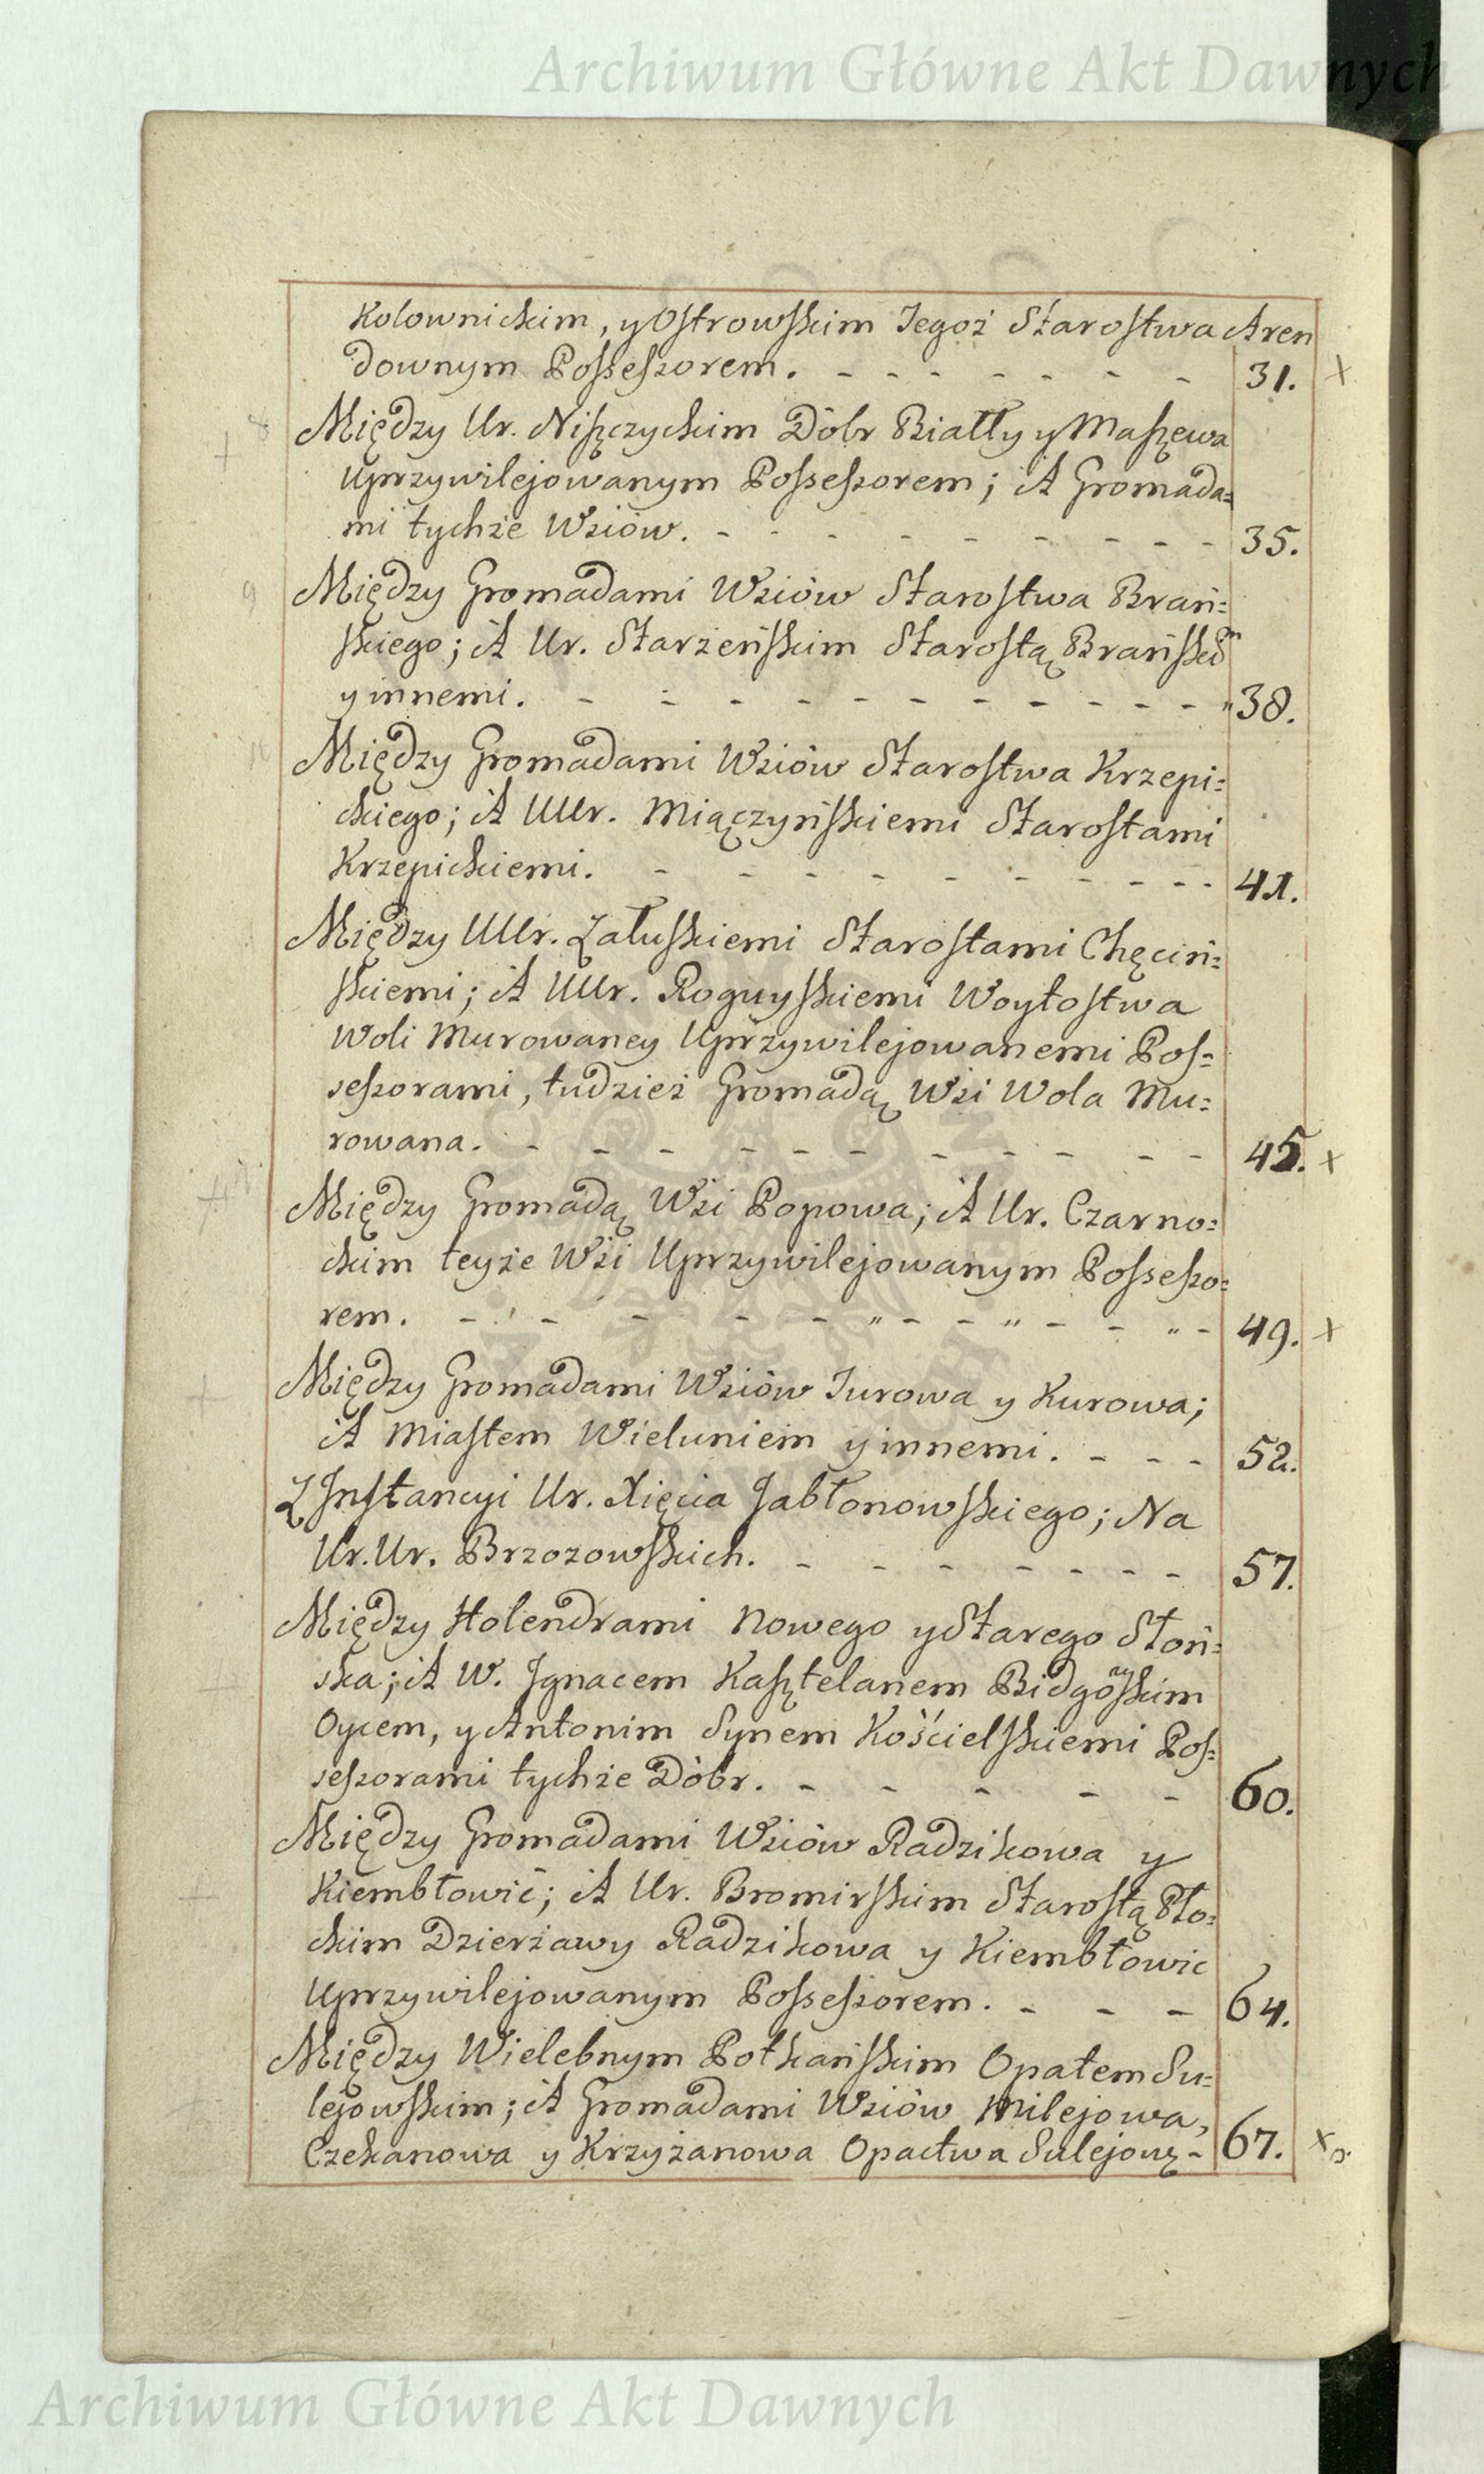 Archiwum Główne Akt Dawnych
Kolownickim, y Ostrowskim Jegoż Starostwa Aren
downym Possessorem. - - - - - - - 31. x
8 + Między Ur. Niszczyckim Dóbr Białły y Maszewa
Uprzywilejowanym Possessorem; A Gromada=
mi tychże Wsiów. - - - - - - - - 35.
9 Między Gromadami Wsiów Starostwa Brań=
skiego; A Ur. Starzeńskim Starostą Brańskim
y innemi. - - - - - - - - - - 38.
10 Między Gromadami Wsiów Starostwa Krzepi=
ckiego; A UUr. Miączyńskiemi Starostami
Krzepickiemi. - - - - - - - - - 41.
Między UUr. Załuskiemi Starostami Chęciń=
skiemi; A UUr. Roguyskiemi Woytostwa
Woli Murowaney Uprzywilejowanemi Pos=
sessorami, tudzież Gromadą Wsi Wola Mu=
rowana. - - - - - - - - - - 45. x
+ Między Gromadą Wsi Popowa; A Ur. Czarno=
ckim teyże Wsi Uprzywilejowanym Possesso=
rem. - - - - - - - - - - 49. x
+ Między Gromadami Wsiów Jurowa y Kurowa;
A Miastem Wieluniem y innemi. - - - 52.
Z Instancyi Ur. Xięcia Jabłonowskiego; Na
Ur. Ur. Brzozowskich. - - - - - - - 57.
Między Holendrami Nowego y Starego Słoń=
+ ska; A W. Ignacem Kasztelanem Bidgoskim
Oycem, y Antonim Synem Kościelskiemi Pos=
sessorami tychże Dóbr. - - - - - 60.
Między Gromadami Wsiów Radzikowa y
+ Kiembłowic; A Ur. Bromirskim Starostą Pło=
ckim Dzierżawy Radzikowa y Kiembłowic
Uprzywilejowanym Possessorem. - - - 64.
Między Wielebnym Potkańskim Opatem Su=
+ lejowskim; A Gromadami Wsiów Milejowa,
Czekanowa y Krzyżanowa Opactwa Sulejow. - 67. x
Archiwum Główne Akt Dawnych